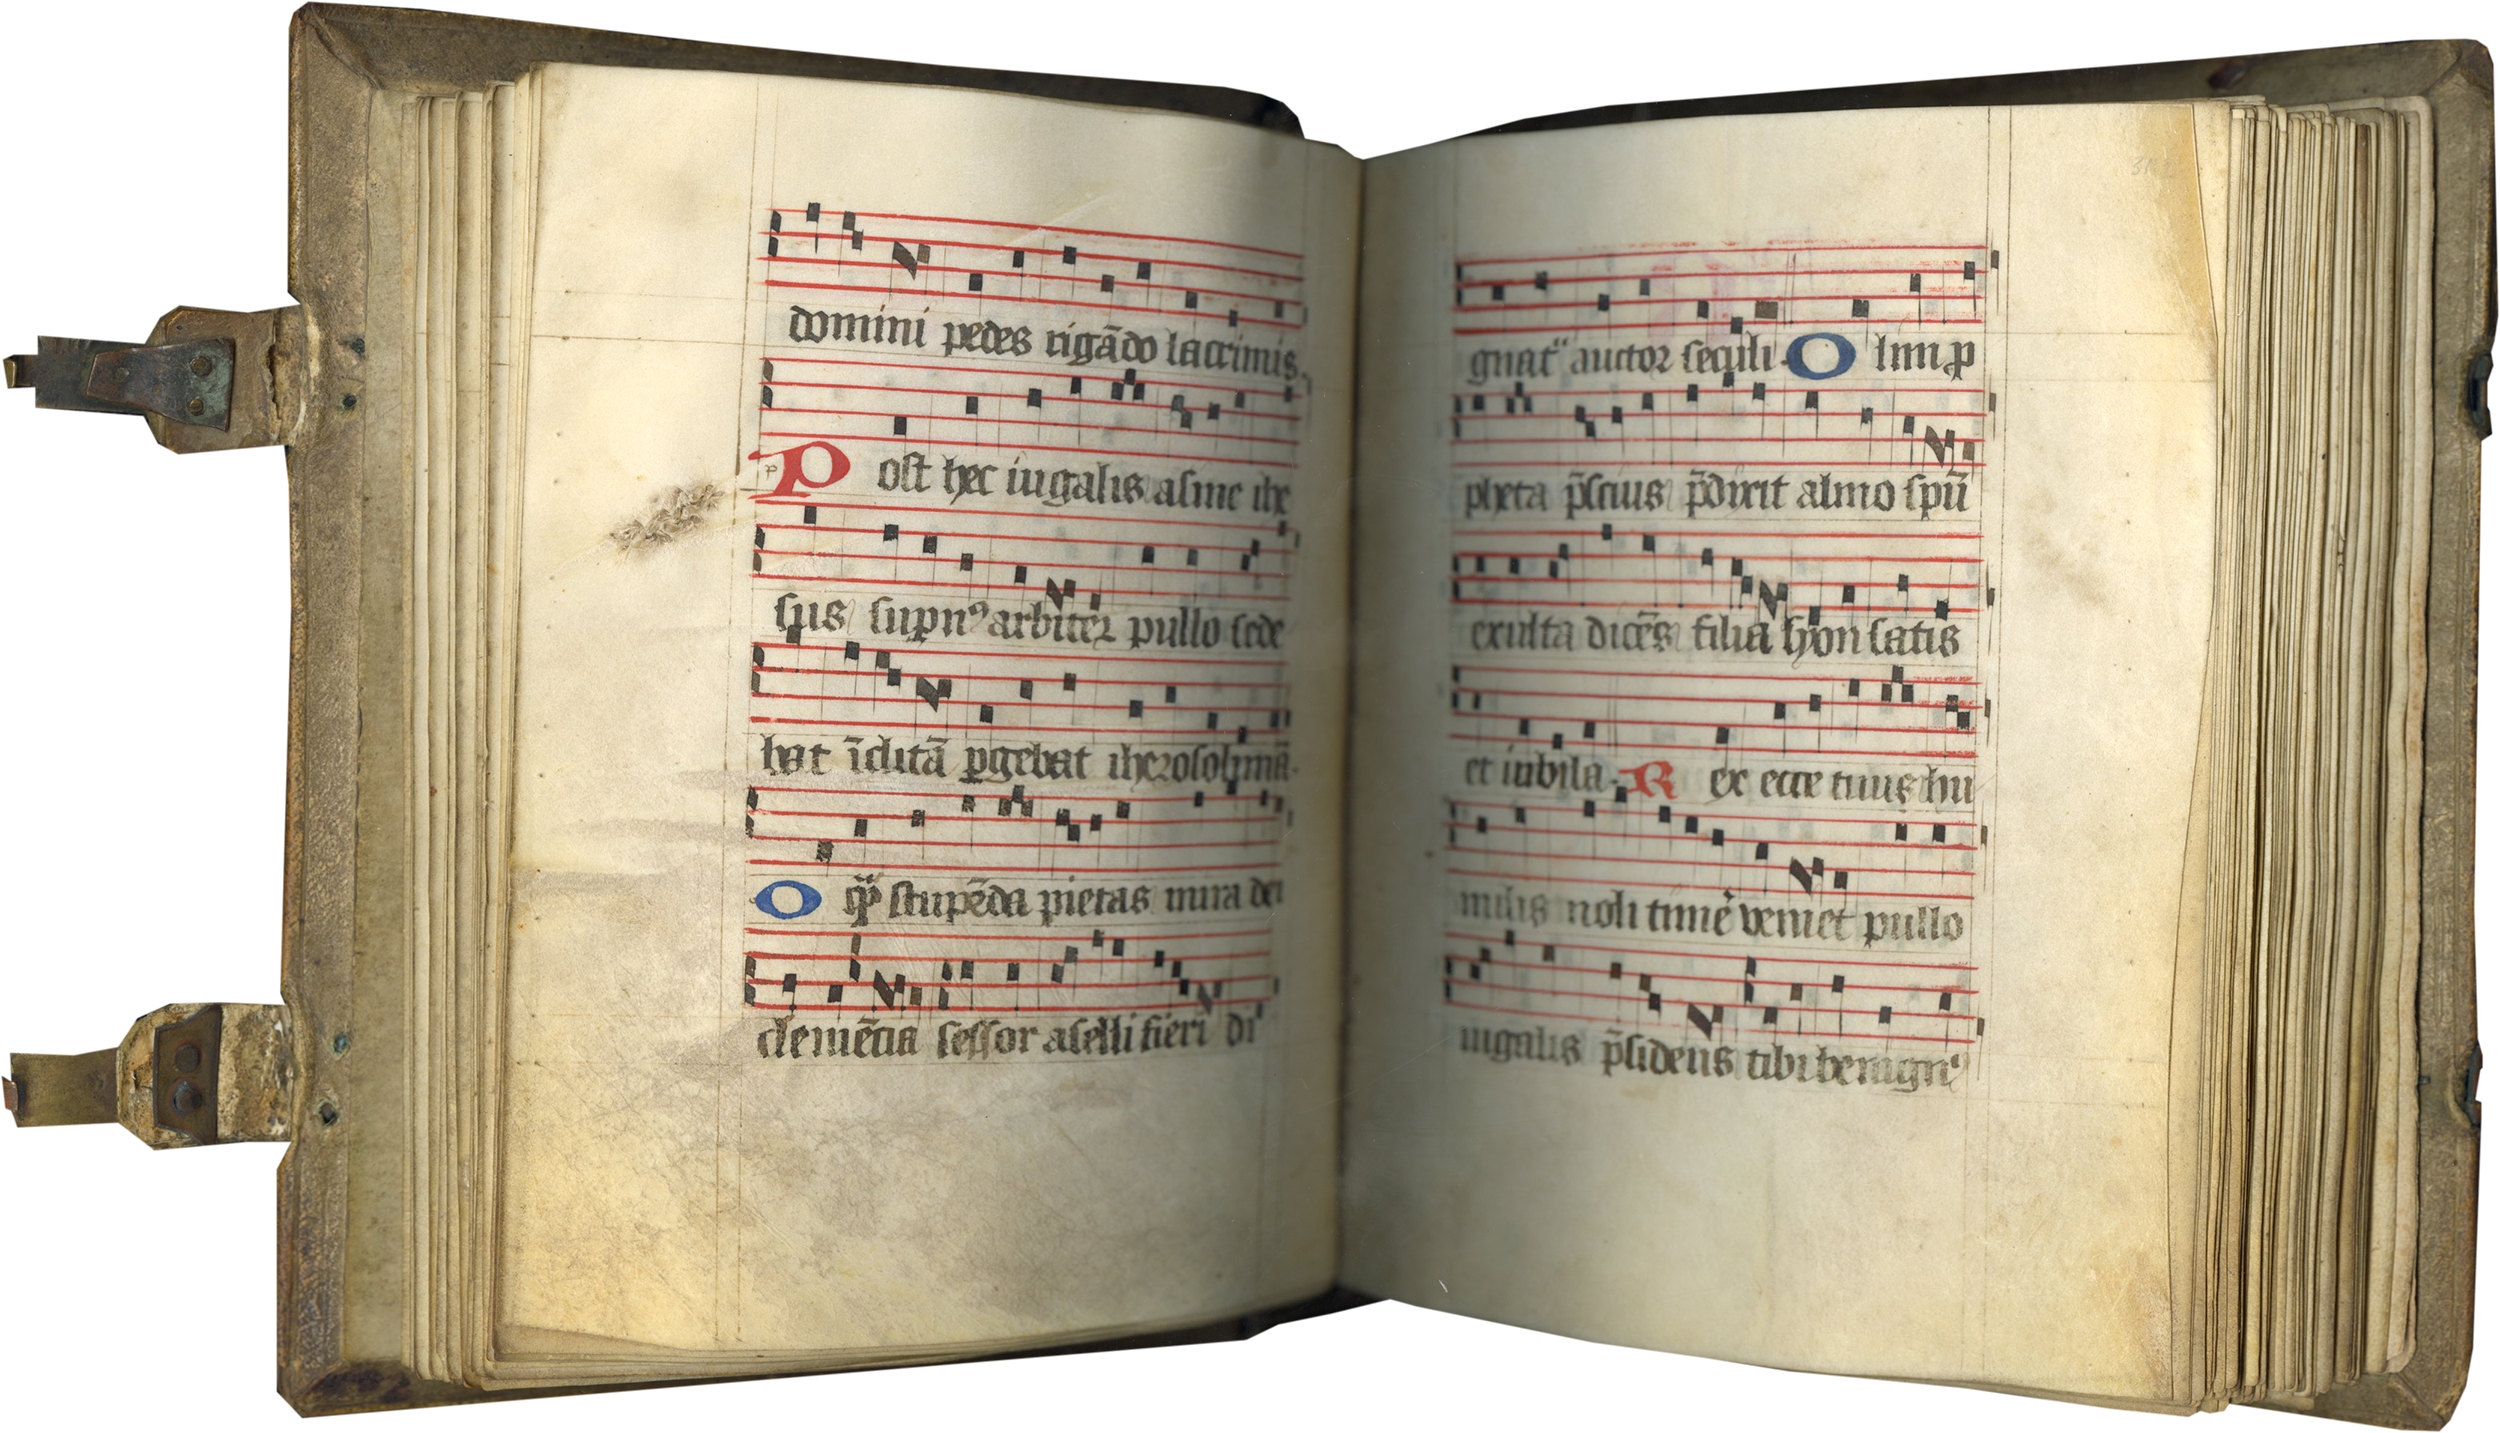 domini pedes rigādo lacrimis.
Post hec iugalis asine ihe
sus supn⁹ arbiter pullo sede
bat īclitā pgebat iherosolimā.
O q̄ stupēda pietas mira dei
clemēcia sessor aselli fieri di
gnat᷒ auctor seculi. Olim p
pheta p̄scius p̄dixit almo spū
exulta dicēs filia syon satis
et iubila. Rex ecce tuus hu
milis noli timē veniet pullo
iugalis p̄sidens tibi benign⁹